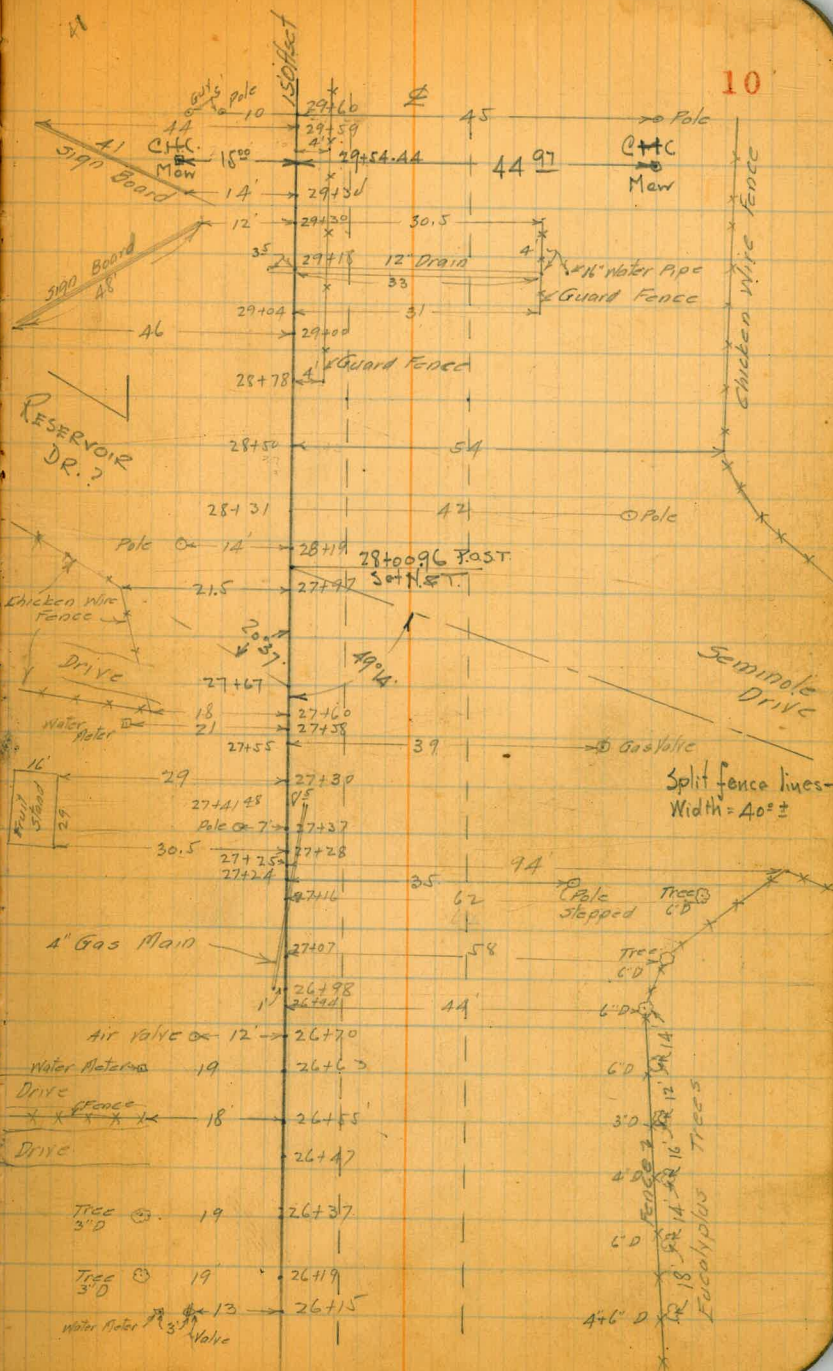 10
15' Offset
℄
Guys Pole
10
29+60
45
Pole
44
29+59
4'
41
Sign Board
C.H.C.
Mon
15⁰⁰
29+54.44
44 97
C.H.C
Mon
14'
12'
29+30
30.5
Sign Board
48'
35
29+18
12" Drain
4'
16" Water Pipe
33
Guard Fence
29+04
31
46
29+00
Guard Fence
28+78
4'
Chicken Wire Fence
RESERVOIR
DR.?
28+50
54
28+31
42
Pole
Pole
14'
28+19
28+00.96 P.O.S.T.
Set N.&T.
21.5
27+97
Chicken Wire
Fence
49°14'
Seminole
Drive
Drive
27+67
18
27+60
Water
Meter
21
27+58
27+55
39
Gas Valve
16'
29
27+30
Split fence lines-
Width = 40⁰ ±
Fruit Stand
29'
27+41 48
1.5
Pole
7'
27+37
30.5
27+28
27+25
94
27+24
35
Pole
stepped
27+16
62
Tree
6"D
4" Gas Main
27+07
58
Tree
6"D
26+98
1'
26+94
44'
6"D
Air Valve
12'
26+70
14'
Water Meter
19
26+63
6"D
12'
Drive
Fence
18'
26+55
3"D
16'
Drive
26+47
4"D
Fence
14'
Eucalyplus Trees
Tree
3"D
19
26+37
6"D
18'
Tree
3"D
19'
26+19
13
26+15
4"+6" D
Water Meter
3'
Valve